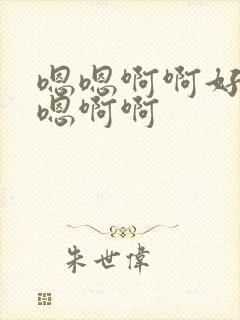 嗯嗯啊啊好
嗯啊啊
朱世偉